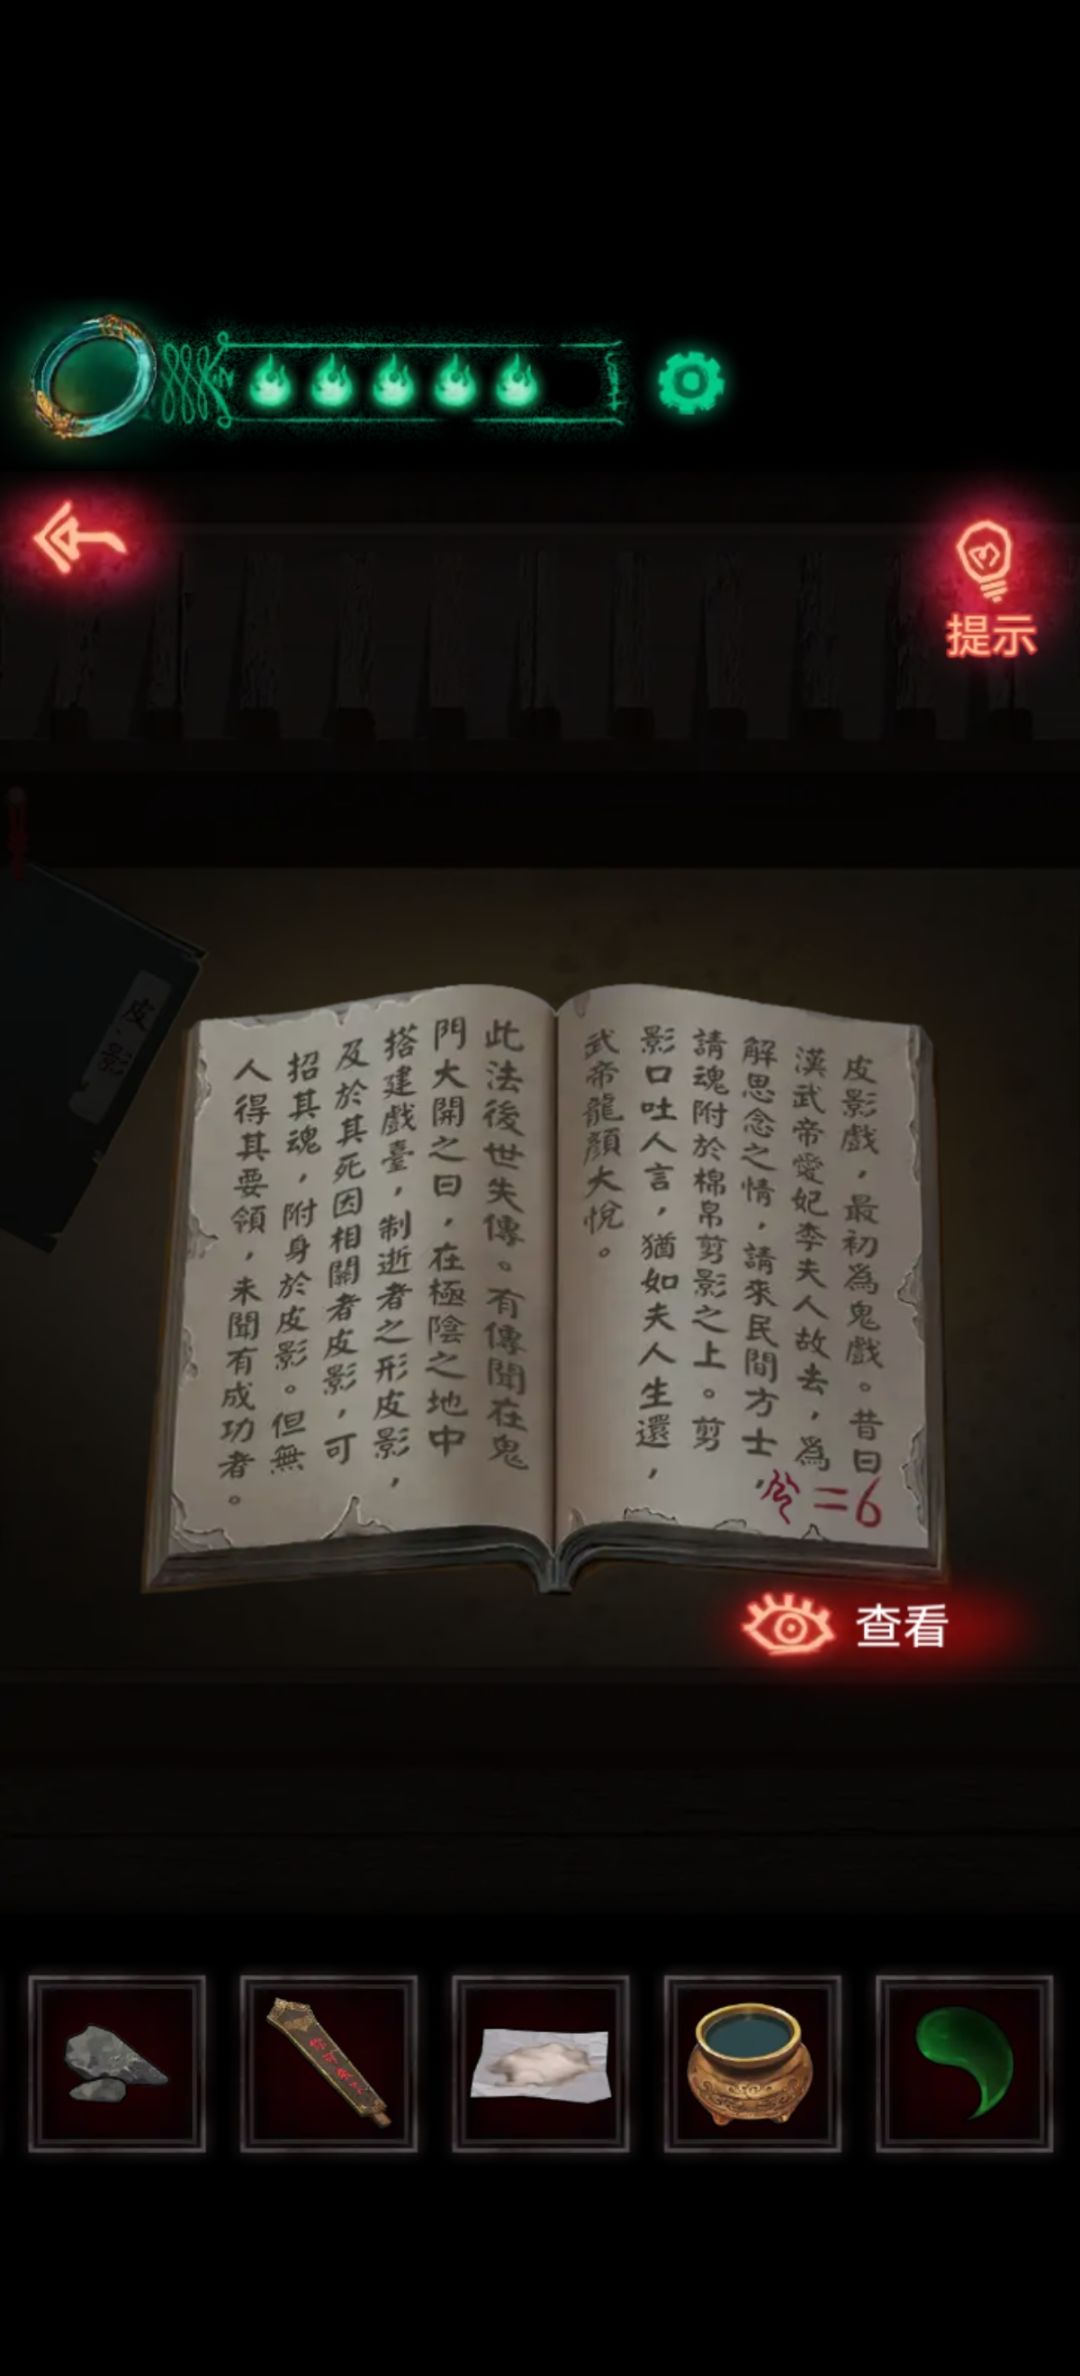 提示
皮影
皮影戲，最初為鬼戲。昔日
漢武帝愛妃李夫人故去，為
解思念之情，請來民間方士，
請魂附於棉帛剪影之上。剪
影口吐人言，猶如夫人生還，
武帝龍顏大悅。
=6
此法後世失傳。有傳聞在鬼
門大開之日，在極陰之地中
搭建戲臺，制逝者之形皮影，
及於其死因相關者皮影，可
招其魂，附身於皮影。但無
人得其要領，未聞有成功者。
查看